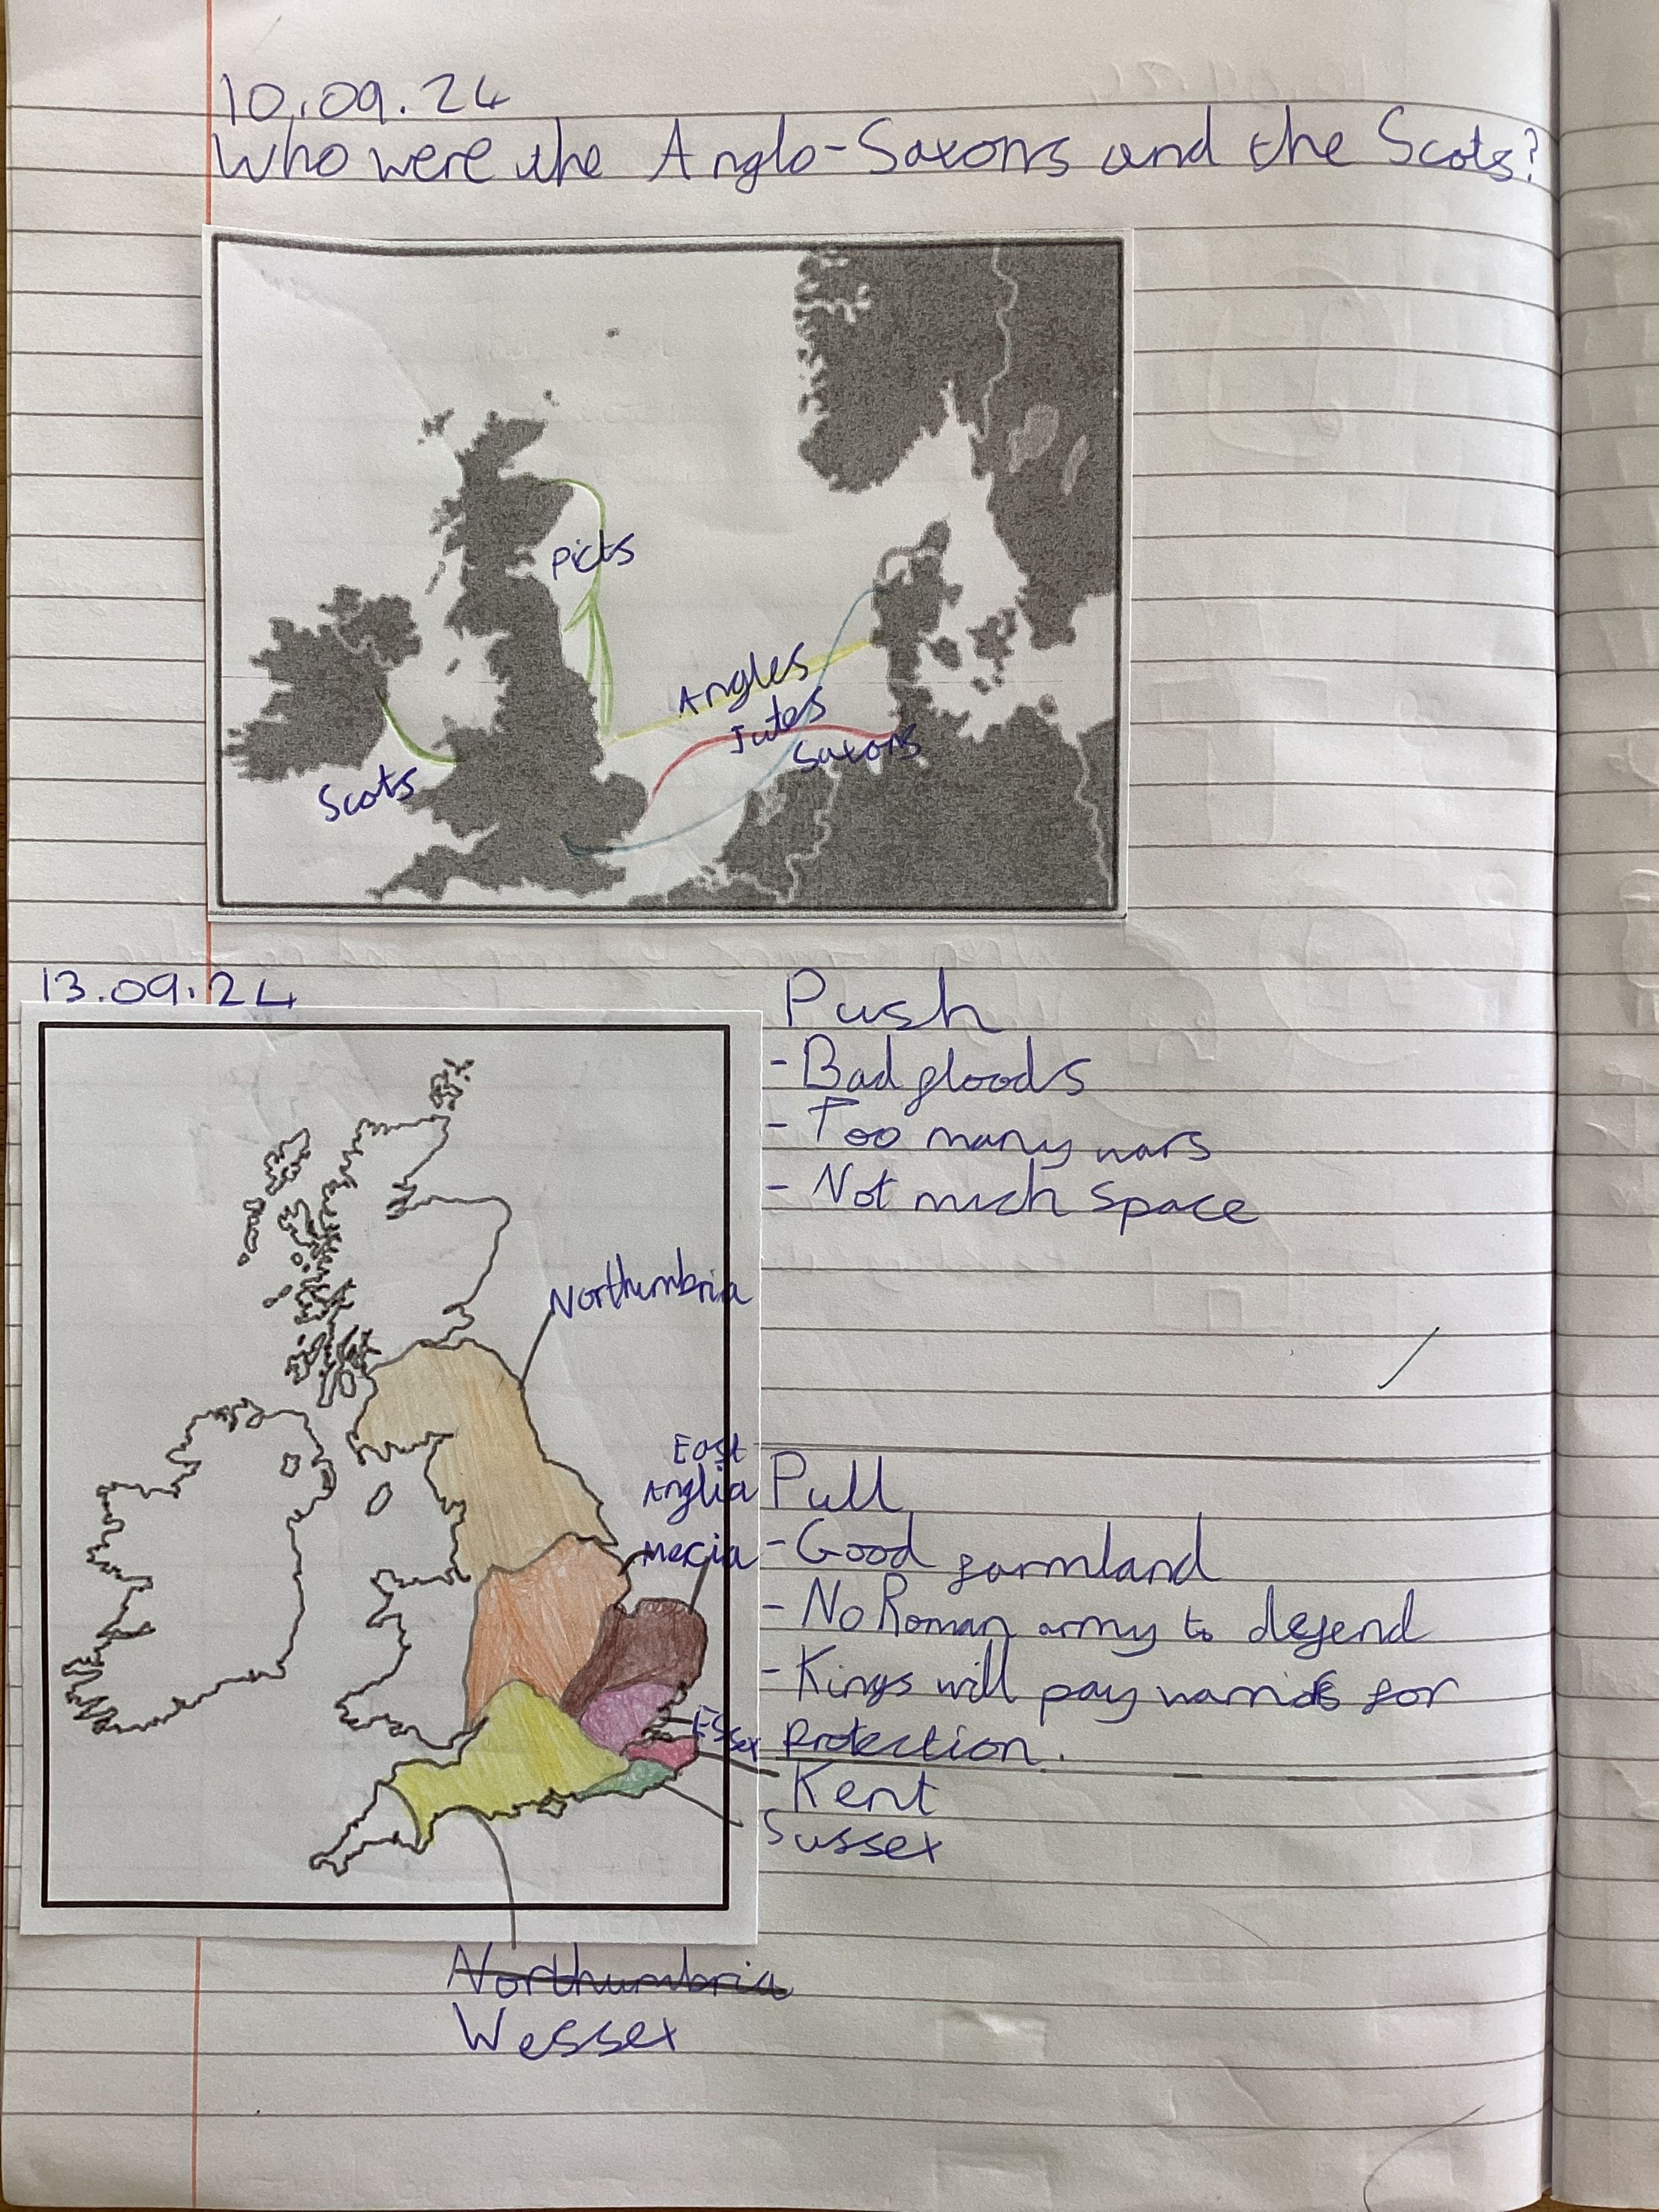 10.09.24
Who were the Anglo-Saxons and the Scots?
Picts
Angles
Jutes
Saxons
Scots
13.09.24
Push
- Bad floods
- Too many wars
- Not much space
Northumbria
East
Anglia
Mercia
Essex
Pull
- Good farmland
- No Roman army to defend
- Kings will pay warriors for
protection.
Kent
Sussex
Northumbria
Wessex